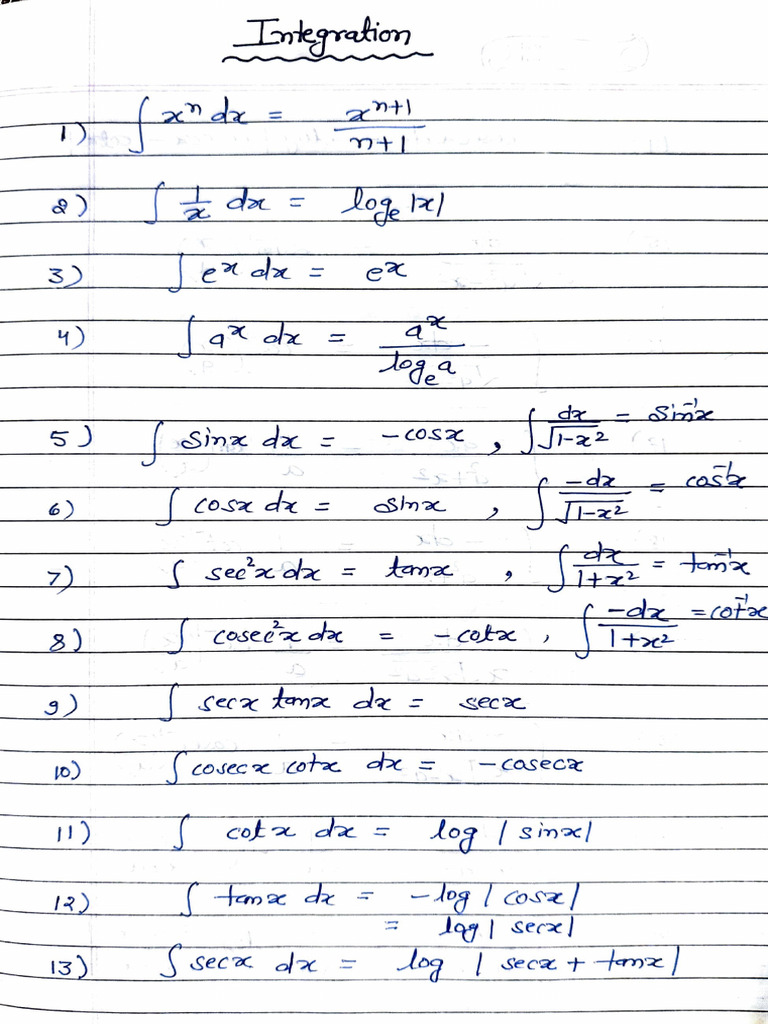 Integration
1) ∫ xⁿ dx = xⁿ⁺¹/n+1
2) ∫ 1/x dx = logₑ |x|
3) ∫ eˣ dx = eˣ
4) ∫ aˣ dx = aˣ/logₑa
5) ∫ sinx dx = -cosx , ∫ dx/√1-x² = sin⁻¹x
6) ∫ cosx dx = sinx , ∫ -dx/√1-x² = cos⁻¹x
7) ∫ sec²x dx = tanx , ∫ dx/1+x² = tan⁻¹x
8) ∫ cosec²x dx = -cotx , ∫ -dx/1+x² = cot⁻¹x
9) ∫ secx tanx dx = secx
10) ∫ cosecx cotx dx = -cosecx
11) ∫ cotx dx = log | sinx|
12) ∫ tanx dx = -log | cosx|
= log | secx|
13) ∫ secx dx = log | secx + tanx|